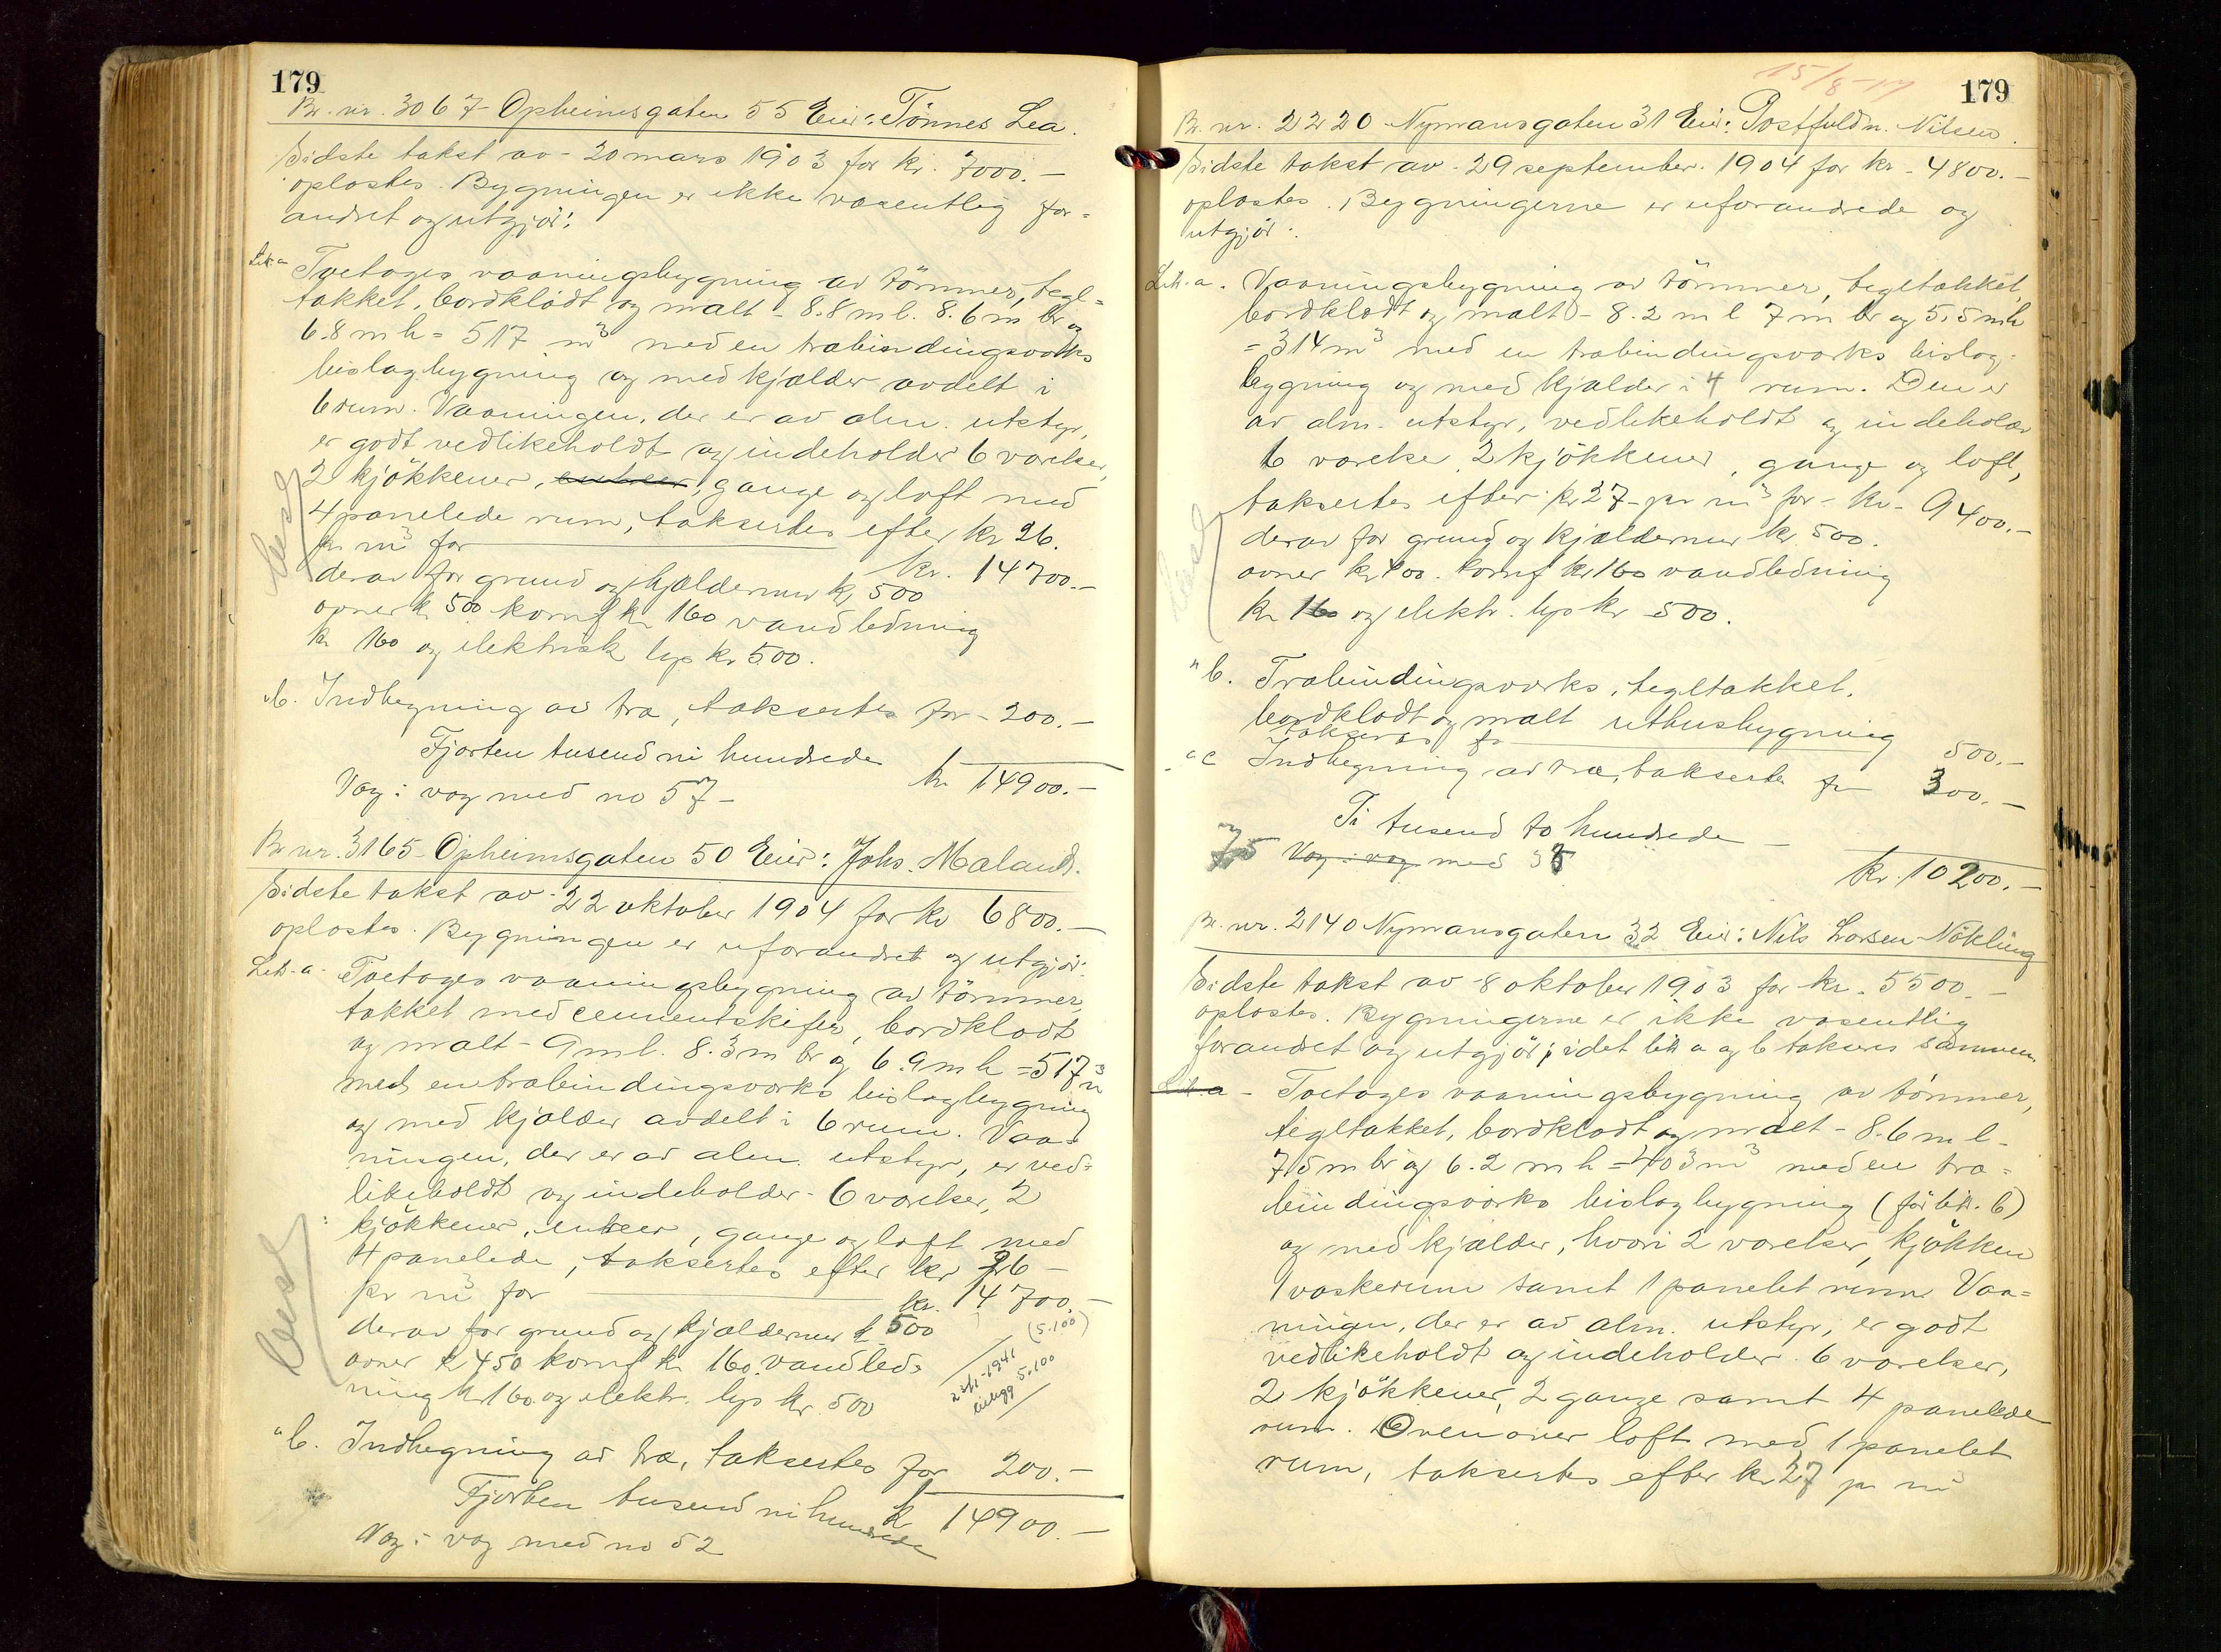 179
Br. nr. 3067 Opheimsgaten 55 Eier: Tönnes Lea.
Sidste takst av - 20 mars 1903 for kr. 7000.-
oplöstes. Bygningen er ikke væsentlig for-
andret og utgjör:
Litr. a Toetages vaaningsbygning av tömmer, tegl-
takket, bordklædt og malt - 8.8 m l. 8.6 m br og
6.8 m h = 517 m³ med en træbindingsværks
bislagbygning og med kjælder avdelt i
6 rum. Vaaningen, der er av alm. utstyr,
er godt vedlikeholdt og indeholder 6 værelser,
2 kjökkener, entreer, gange og loft med
4 panelede rum, taksertes efter kr 26.
pr m³ for kr. 14700.-
derav for grund og kjældermur kr 500
ovner kr 500 komf kr 160 vandledning
kr 160 og elektrisk lys kr 500.
" b. Indhegning av træ, taksertes for - 200.-
Fjorten tusend ni hundrede kr 14900.-
Vag: vag med no 57 -
Br nr. 3165 - Opheimsgaten 50 Eier: Johs. Maland.
Sidste takst av - 22 oktober 1904 for kr 6800.-
oplöstes. Bygningen er uforandret og utgjör:
Litr. a - Toetages vaaningsbygning av tömmer,
takket med cementskifer, bordklædt
og malt - 9 m l. 8.3 m br og 6.9 m h = 517 m³
med en træbindingsværks bislagbygning
og med kjælder avdelt i 6 rum. Vaa-
ningen, der er av alm. utstyr, er ved-
likeholdt og indeholder - 6 værelser, 2
kjökkener, entreer, gange og loft med
4 panelede, taksertes efter kr 26 -
pr m³ for kr. 14700.-
(5.100)
derav for grund og kjældermur kr 500
ovner kr 450 komf kr 160 vandled-
ning kr 160 og elektr. lys kr 500
1941
5.100
" b. Indhegning av træ, taksertes for 200.-
Fjorten tusend ni hundrede kr 14900.-
Vag: vag med no 52
15/8-17
179
Br. nr. 2220 - Nymansgaten 31 Eier: Postfuldm. Nilsen.
Sidste takst av - 29 september 1904 for kr - 4800.-
oplöstes. Bygningerne er uforandrede og
utgjör:
Litr. a. Vaaningsbygning av tömmer, tegltakket,
bordklædt og malt - 8.2 m l 7 m br og 5.5 m h
= 314 m³ med en træbindingsværks bislag-
bygning og med kjælder i 4 rum. Den er
av alm. utstyr, vedlikeholdt og indeholder
6 værelse, 2 kjökkener, gange og loft,
taksertes efter kr 27 - pr m³ for - kr - 9400.-
derav for grund og kjældermur kr. 500.
ovner kr 400. komf kr 160 vandledning
kr 160 og elektr. lys kr 500.
" b. Træbindingsværks, tegltakket,
bordklædt og malt uthusbygning
takseres for 500.-
" c Indhegning av træ, taksertes for 300.-
Ti tusend to hundrede
Vag: vag med kr. 10200.-
Br. nr. 2140 Nymansgaten 32 Eier: Nils Larsen Nökling
Sidste takst av - 8 oktober 1903 for kr. 5500.-
oplöstes. Bygningerne er ikke væsentlig
forandret og utgjör; idet litr a og b takseres sammen
Litr. a - Toetages vaaningsbygning av tömmer,
tegltakket, bordklædt og malt - 8.6 m l -
7.5 m br og 6.2 m h = 403 m³ med en træ-
bindingsværks bislagbygning (för litr. b)
og med kjælder, hvori 2 værelser, kjökken
1 vaskerum samt 1 panelet rum. Vaa-
ningen, der er av alm. utstyr, er godt
vedlikeholdt og indeholder. 6 værelser,
2 kjökkener, 2 gange samt 4 panelede
rum. Ovenover loft med 1 panelet
rum, taksertes efter kr 27 pr m³